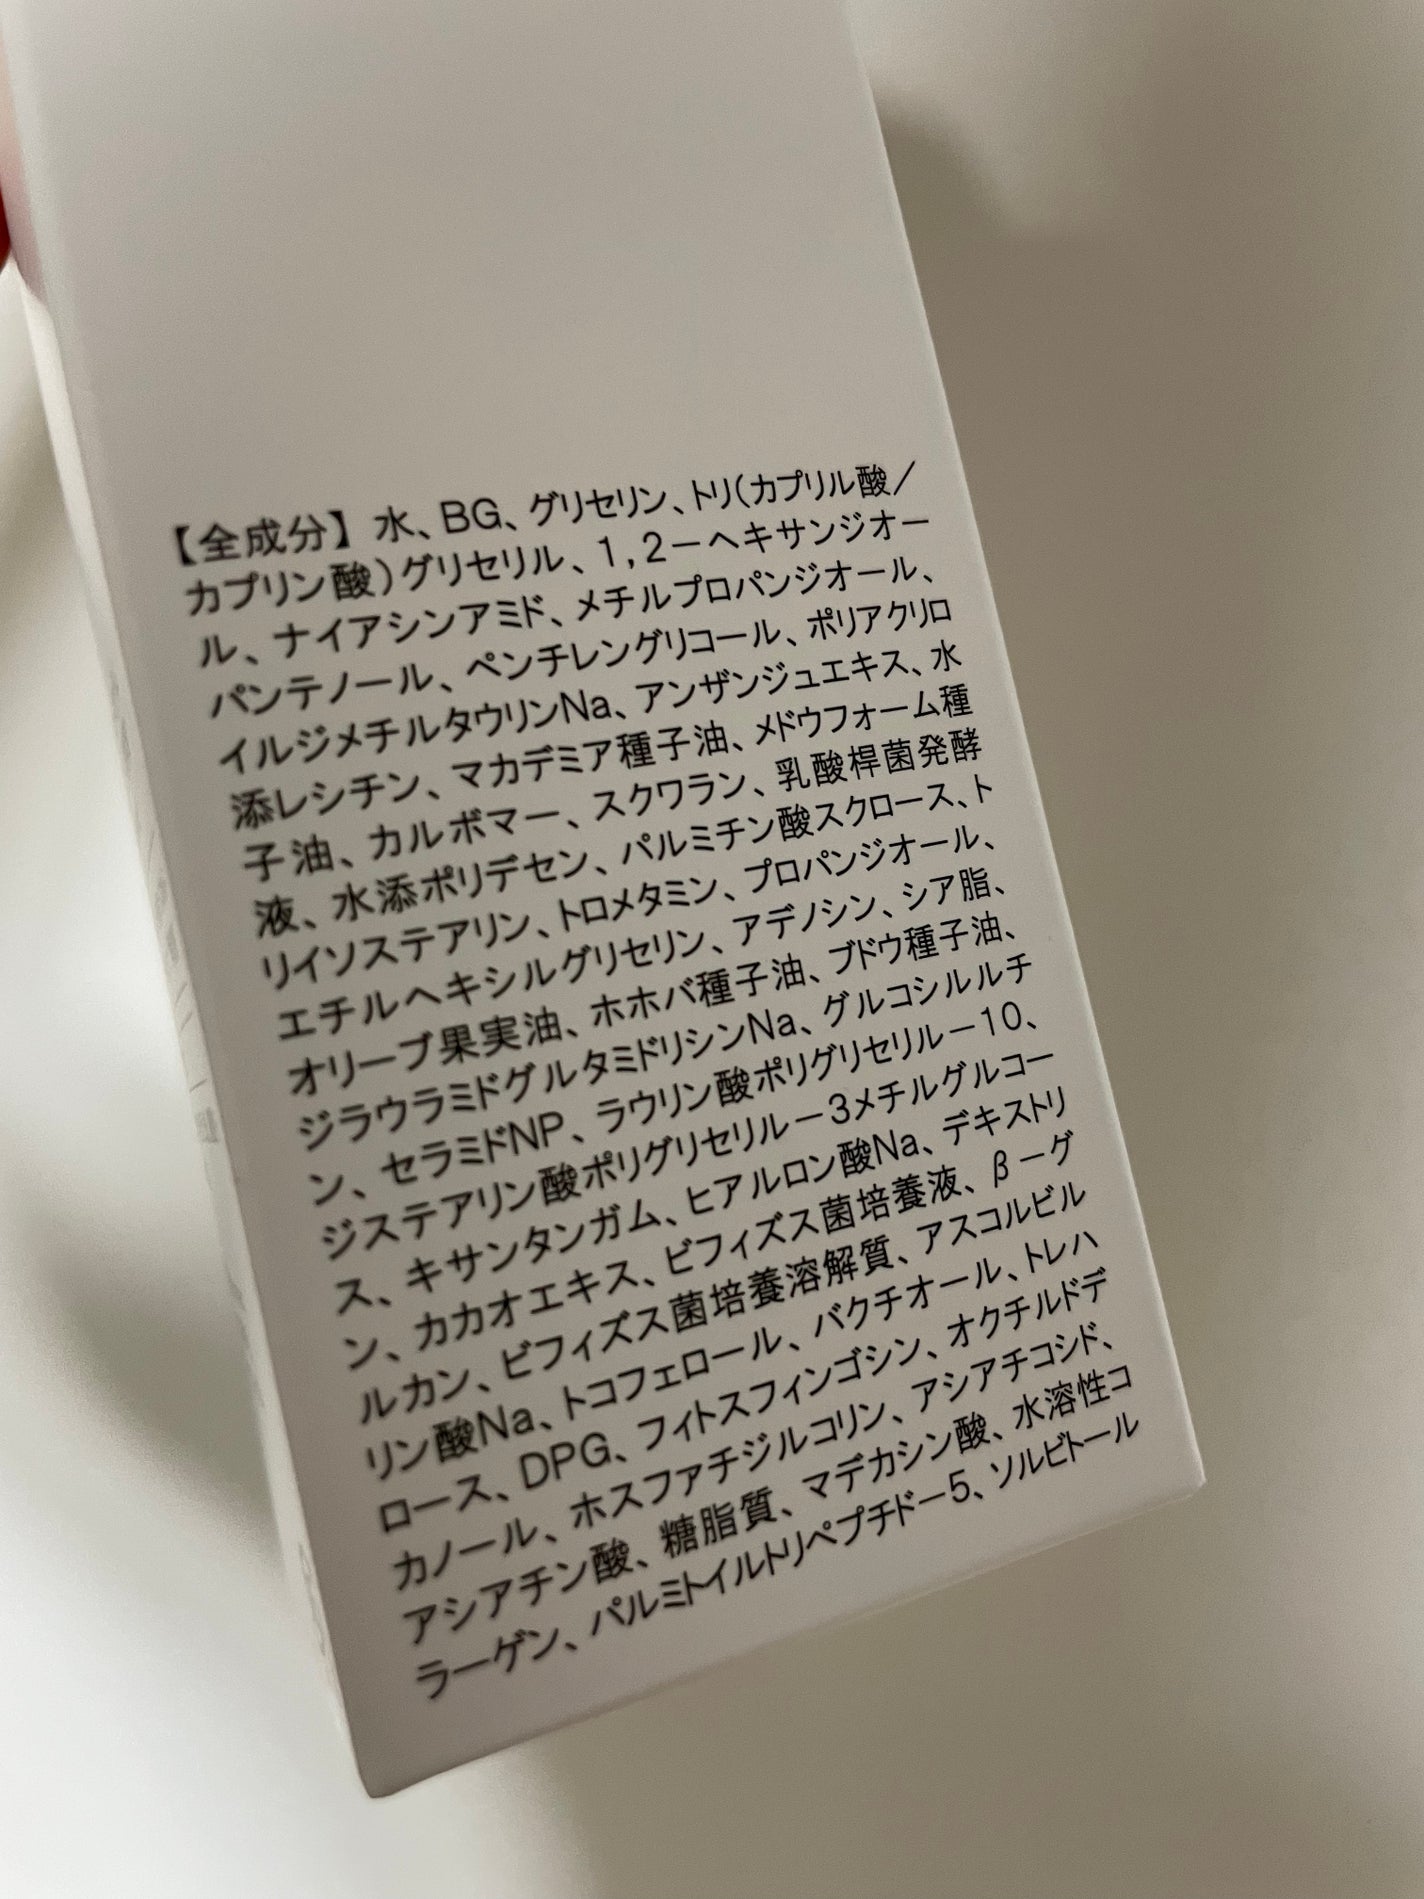 【全成分】水、BG、グリセリン、トリ(カプリル酸／
カプリン酸)グリセリル、1,2－ヘキサンジオー
ル、ナイアシンアミド、メチルプロパンジオール、
パンテノール、ペンチレングリコール、ポリアクリロ
イルジメチルタウリンNa、アンザンジュエキス、水
添レシチン、マカデミア種子油、メドウフォーム種
子油、カルボマー、スクワラン、乳酸桿菌発酵
液、水添ポリデセン、パルミチン酸スクロース、ト
リイソステアリン、トロメタミン、プロパンジオール、
エチルヘキシルグリセリン、アデノシン、シア脂、
オリーブ果実油、ホホバ種子油、ブドウ種子油、
ジラウラミドグルタミドリシンNa、グルコシルルチ
ン、セラミドNP、ラウリン酸ポリグリセリル－10、
ジステアリン酸ポリグリセリル－3メチルグルコー
ス、キサンタンガム、ヒアルロン酸Na、デキストリ
ン、カカオエキス、ビフィズス菌培養液、β－グ
ルカン、ビフィズス菌培養溶解質、アスコルビル
リン酸Na、トコフェロール、バクチオール、トレハ
ロース、DPG、フィトスフィンゴシン、オクチルドデ
カノール、ホスファチジルコリン、アシアチコシド、
アシアチン酸、糖脂質、マデカシン酸、水溶性コ
ラーゲン、パルミトイルトリペプチド－5、ソルビトール